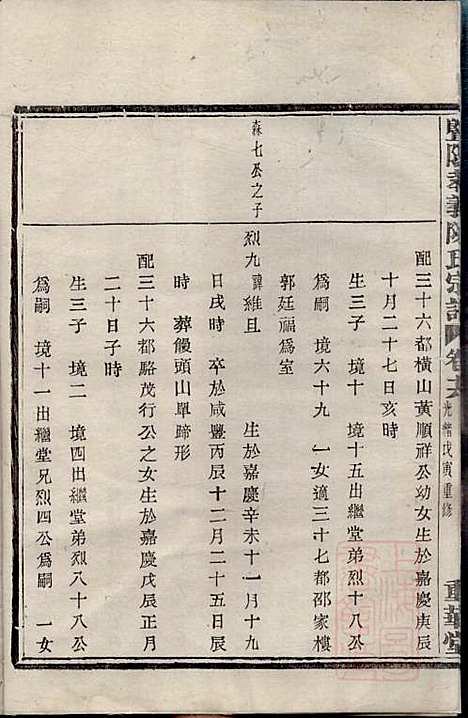 暨陽孝義陳氏宗譜 卷六 光緒戊寅重修 重華堂
配三十六都橫山黃順祥公幼女生於嘉慶庚辰
十月二十七日亥時
生三子 境十 境十五出繼堂弟烈十八公
爲嗣 境六十九 一女適三十七都邵家樓
郭廷福爲室
森七公之子
烈九 諱維且 生於嘉慶辛未十一月十九
日戌時 卒於咸豐丙辰十二月二十五日辰
時 葬饅頭山單蹄形
配三十六都駱茂行公之女生於嘉慶戊辰正月
二十日子時
生三子 境二 境四出繼堂弟烈八十八公
爲嗣 境十一出繼堂兄烈四公爲嗣 一女